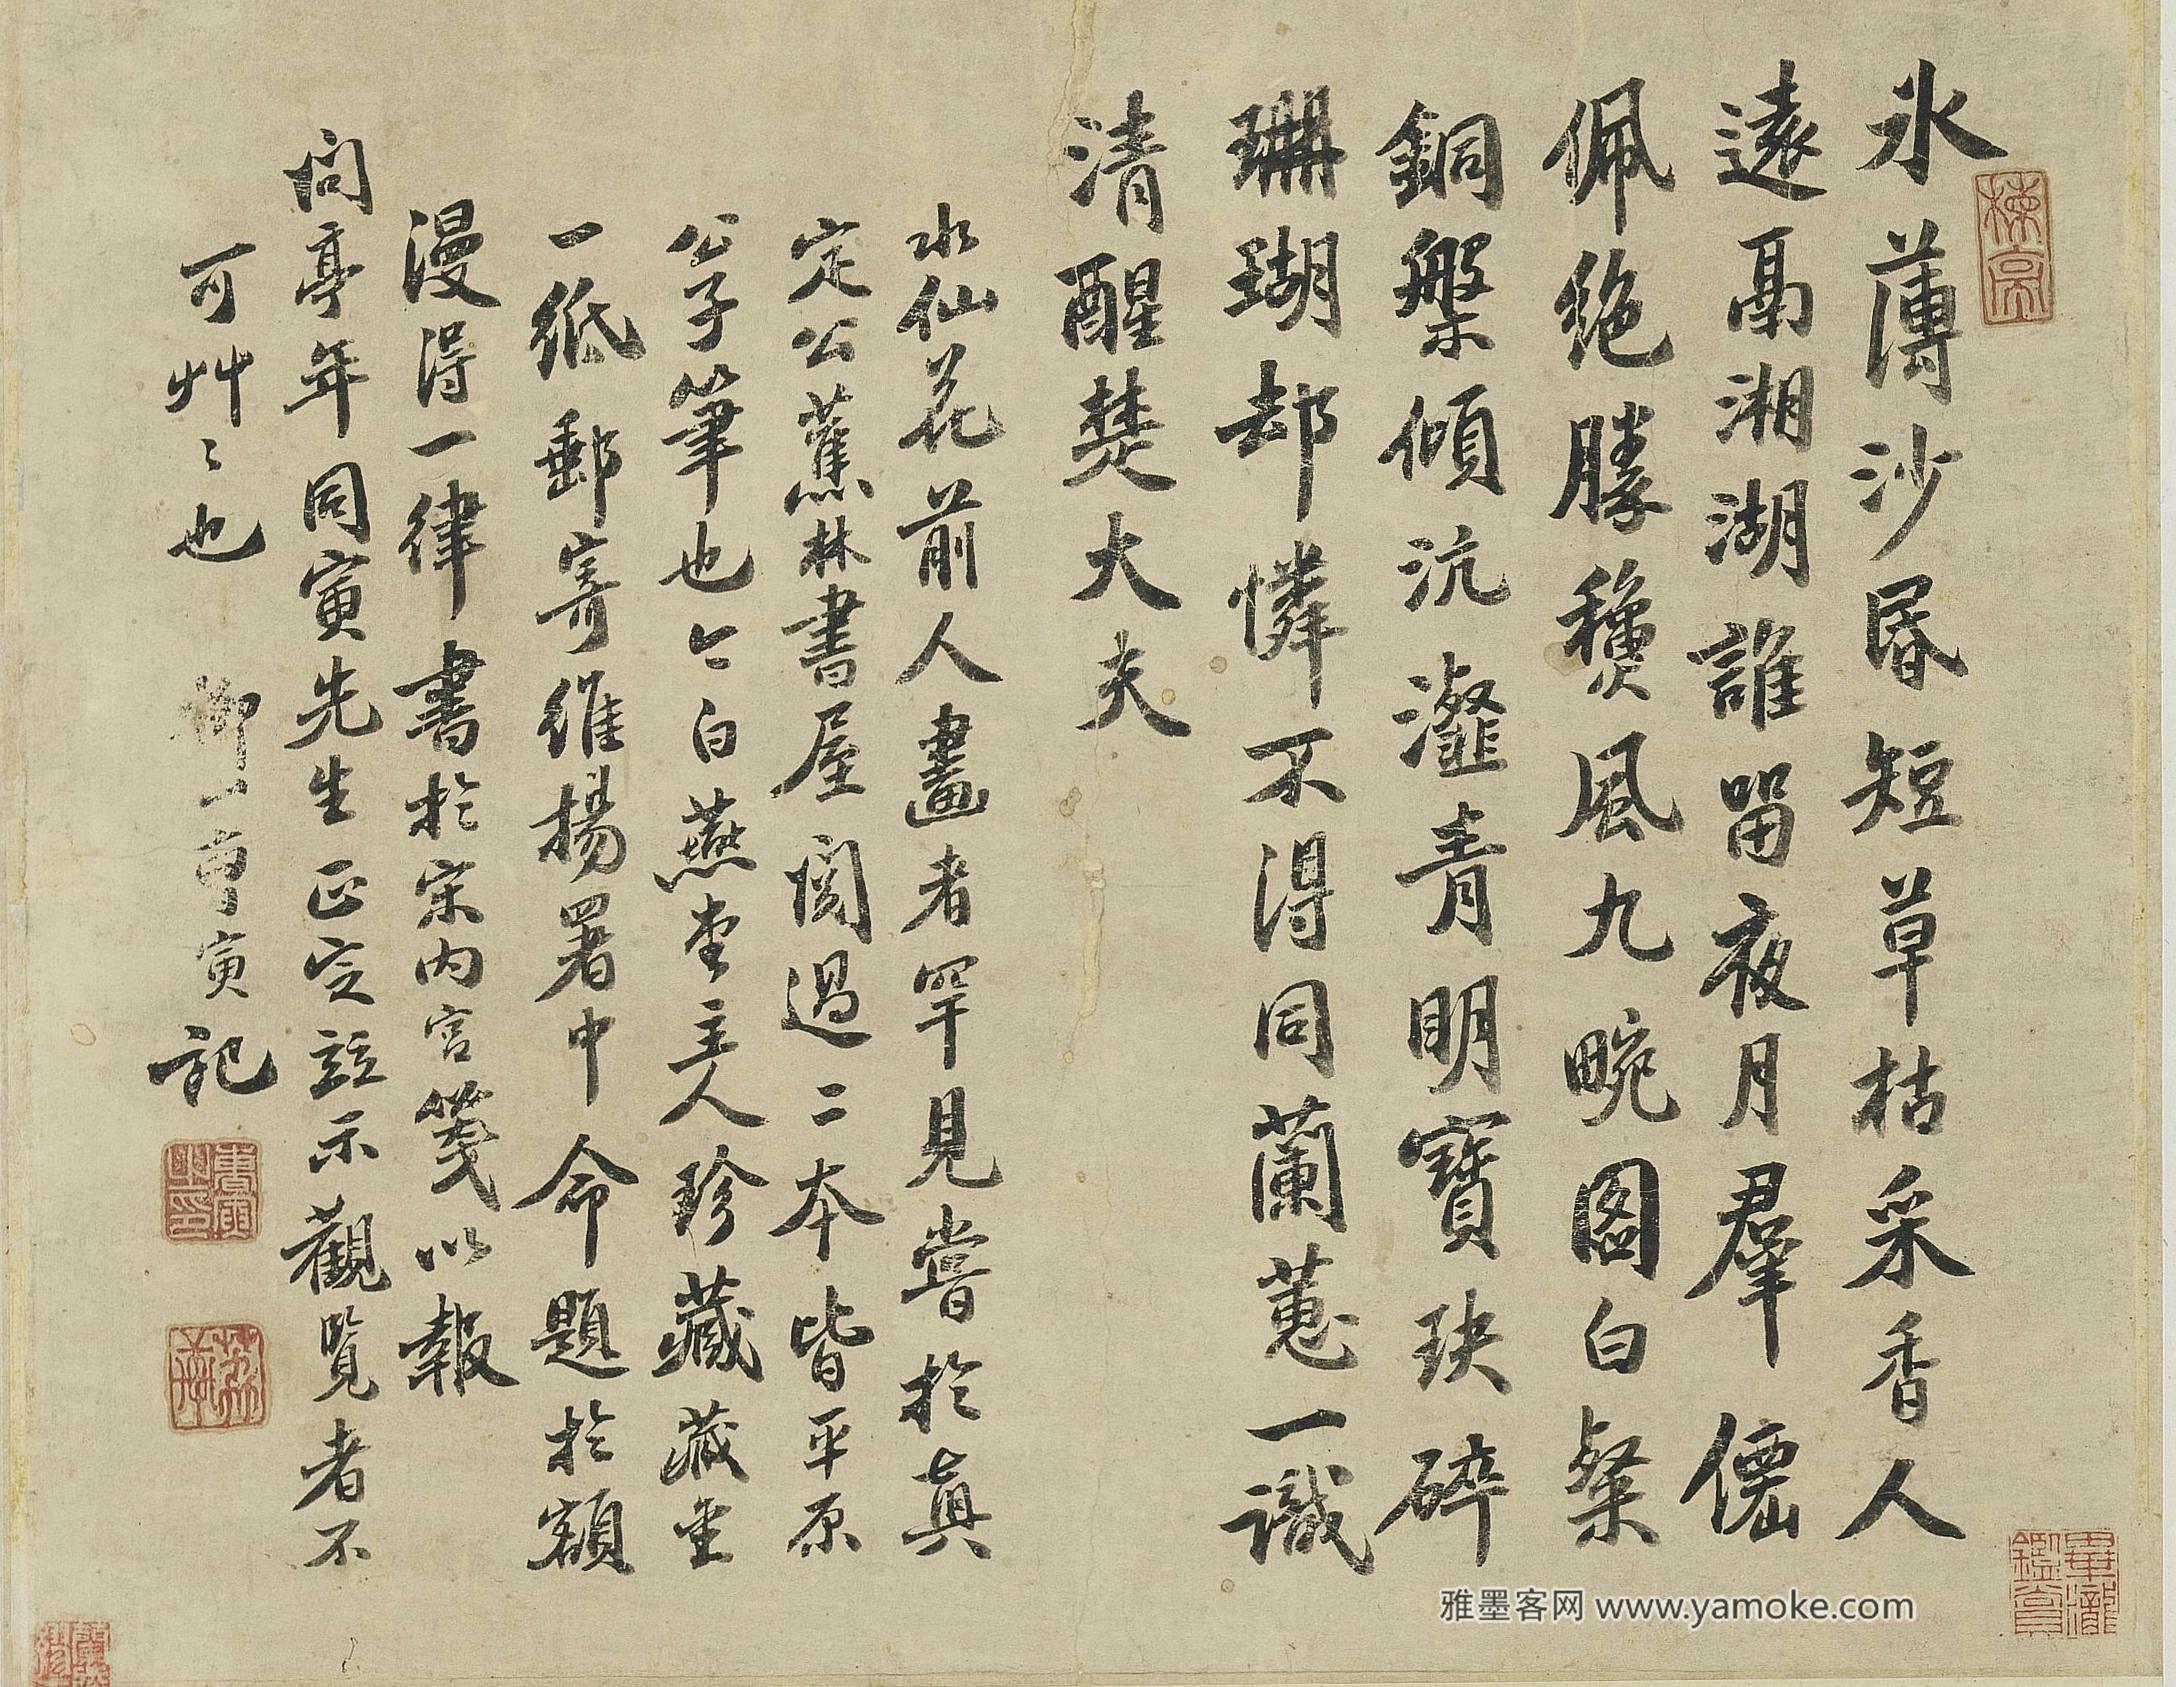 氷薄沙昏短草枯采香人
遠鬲湘湖誰留夜月羣僊
佩絶勝穠風九畹圖白粲
銅槃傾沆瀣青明寶玦碎
珊瑚却憐不得同蘭蕙一識
清醒楚大夫
水仙花前人畫者罕見嘗於真
定公蕉林書屋閱過二本皆平原
公子筆也今白燕堂主人珍藏藏堂
一紙郵寄維揚署中命題於額
漫得一律書於宋內宮箋以報
問亭年同寅先生正定并示觀覽者不
可艸〻也 柳山曹寅記
楝亭
畢瀧鑑賞
曹寅之印
荔軒
雅墨客网 www.yamoke.com